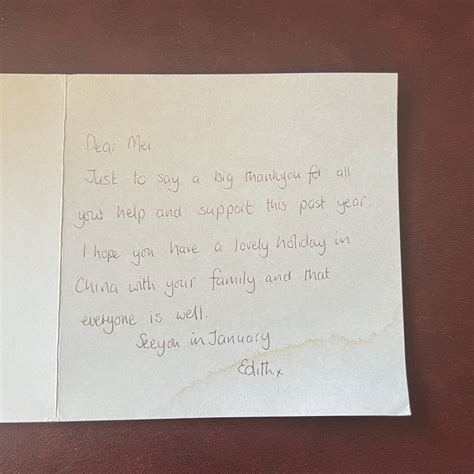 Dear Mei
Just to say a big thankyou for all
your help and support this past year.
I hope you have a lovely holiday in
China with your family and that
everyone is well.
See you in January
Edith x